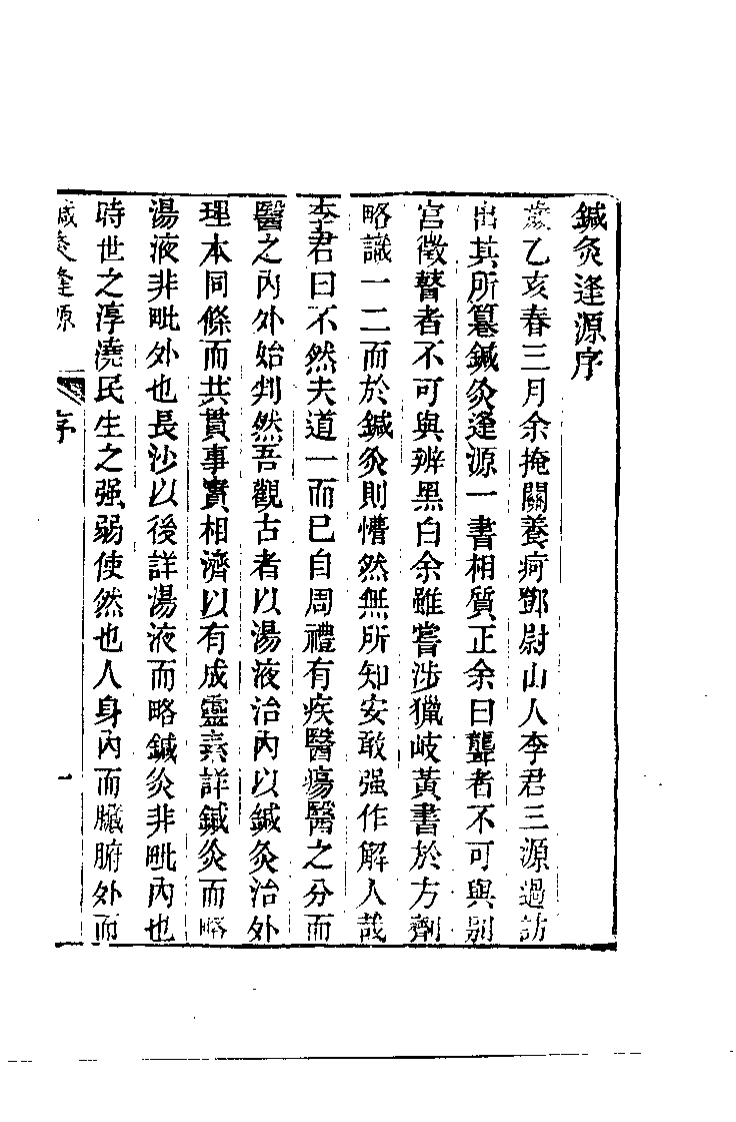 鍼灸逢源序
歲乙亥春三月余掩關養疴鄧尉山人李君三源過訪
出其所纂鍼灸逢源一書相質正余曰聾者不可與別
宮徵瞽者不可與辨黑白余雖嘗涉獵岐黃書於方劑
略識一二而於鍼灸則懵然無所知安敢强作解人哉
李君曰不然夫道一而已自周禮有疾醫瘍醫之分而
醫之內外始判然吾觀古者以湯液治內以鍼灸治外
理本同條而共貫事實相濟以有成靈素詳鍼灸而略
湯液非毗外也長沙以後詳湯液而略鍼灸非毗內也
時世之淳澆民生之强弱使然也人身內而臟腑外而
鍼灸逢源 序 一